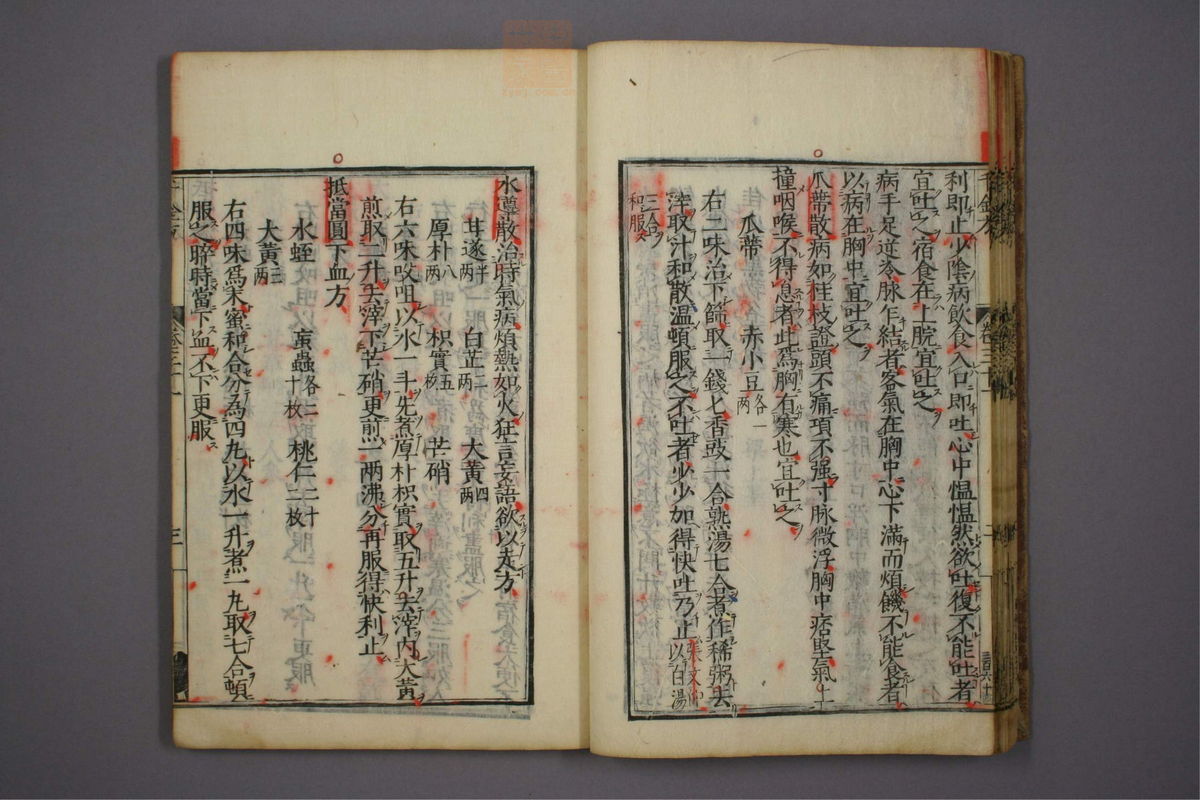 利即止少陰病飲食入口即吐心中愠愠然欲吐復不能吐者
宜吐之宿食在上脘宜吐之
病手足逆冷脉乍結者客氣在胸中心下滿而煩饑不能食者
以病在胸中宜吐之
瓜蔕散病如桂枝證頭不痛項不强寸脉微浮胸中痞堅氣上
撞咽喉不得息者此爲胸有寒也宜吐之
瓜蔕 赤小豆各一两
右二味治下篩取一錢匕香豉一合熟湯七合煮作稀粥去
滓取汁和散温頓服之不吐者少少加得快吐乃止張文仲以白湯
三合和服
水導散治時氣病煩熱如火狂言妄語欲走方
甘遂半两 白芷一两 大黄四两
厚朴八两 枳實五枚 芒硝
右六味㕮咀以水一斗先煮厚朴枳實取五升去滓内大黄
煎取二升去滓下芒硝更煎一两沸分再服得快利止
抵當圓下血方
水蛭 䖟蟲各二十枚 桃仁二十二枚
大黄三两
右四味爲末蜜和合分爲四丸以水一升煮一丸取七合頓
服之晬時當下血不下更服